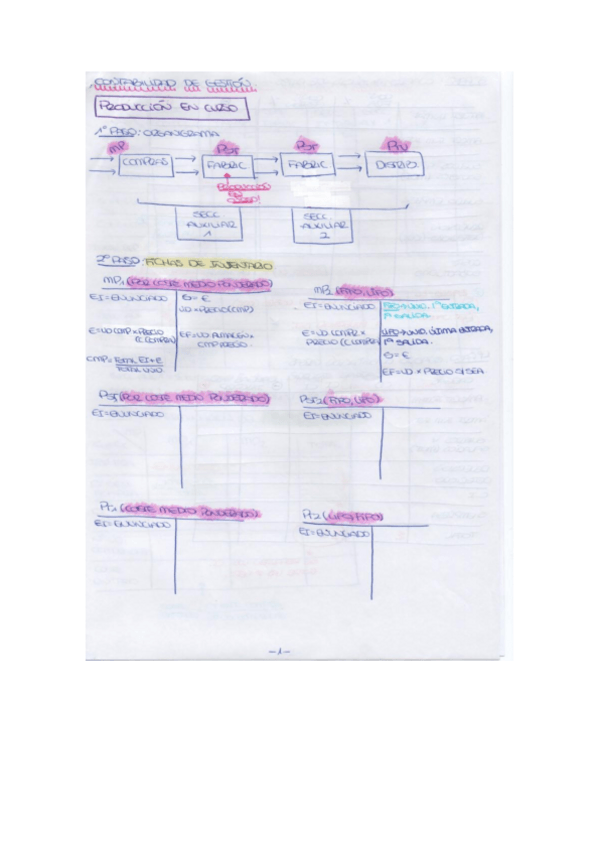 CONTABILIDAD DE GESTIÓN
PRODUCCIÓN EN CURSO
1º PASO: ORGANIGRAMA
MP PST PST
COMPRAS FABRIC FABRIC DISTRIB
PRODUCCIÓN
EN
CURSO!
SECC SECC
AUXILIAR AUXILIAR
1 2
2º PASO: FICHAS DE INVENTARIO
MP1 (POR COSTE MEDIO PONDERADO)
EI=ENUNCIADO
S= €
UD × PRECIO (CMP)
E=UD COMP × PRECIO
(C.COMPRA)
EF=UD ALMACEN ×
CMP PRECIO
CMP= TOTAL EI+E
TOTAL UNID.
MP2 (FIFO, LIFO)
EI=ENUNCIADO
FIFO→UNID. 1ª ENTRADA,
1ª SALIDA.
E=UD COMPR ×
PRECIO (C.COMPRA)
LIFO→UNID. ÚLTIMA ENTRADA,
1ª SALIDA.
S= €
EF=UD × PRECIO
PST1 (POR COSTE MEDIO PONDERADO)
EI=ENUNCIADO
PST2 (FIFO, LIFO)
EI=ENUNCIADO
(COSTE MEDIO PONDERADO)
EI=ENUNCIADO
PT2 (LIFO/FIFO)
EI=ENUNCIADO
-1-